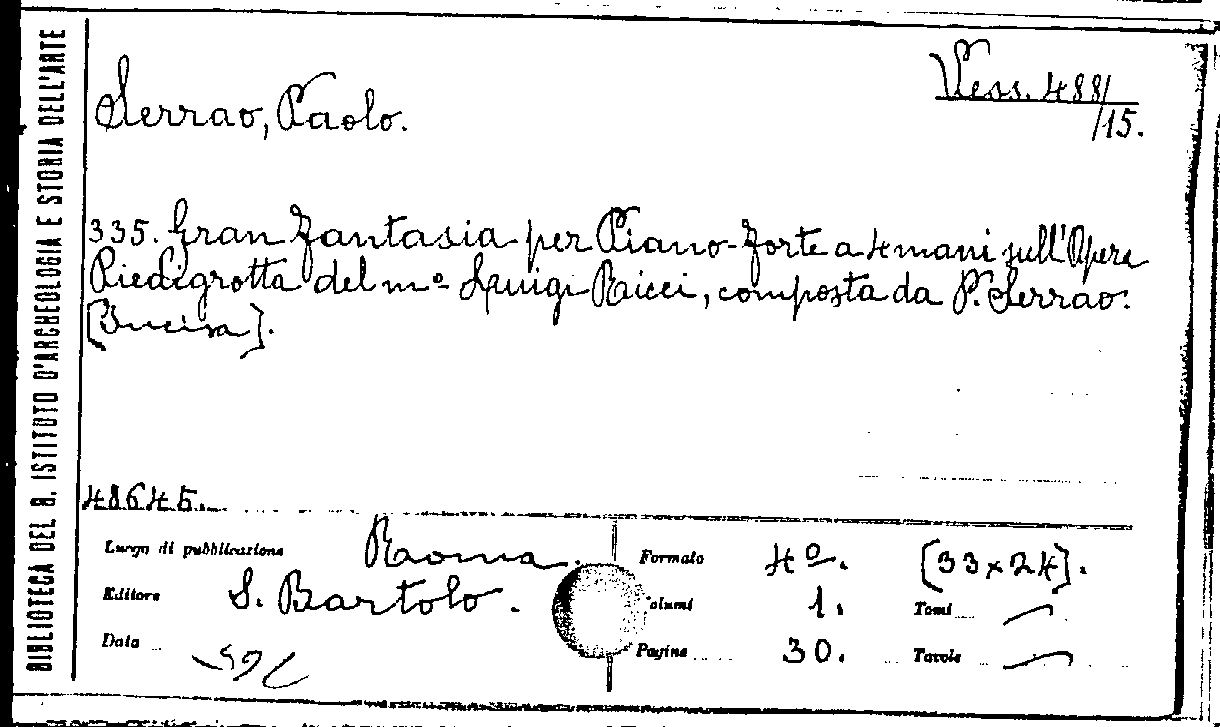 BIBLIOTECA DEL R. ISTITUTO D'ARCHEOLOGIA E STORIA DELL'ARTE
Serrao, Paolo.
Vess. 488/
/15.
335. Gran Fantasia per Piano-Forte a 4 mani sull'Opera
Piedigrotta del mº Luigi Ricci, composta da P. Serrao.
[Incisa].
48645.
Luogo di pubblicazione Roma.
Editore S. Bartolo.
Data
Formato 4º. [33x24].
olumi 1. Tomi —
Pagine 30. Tavole —